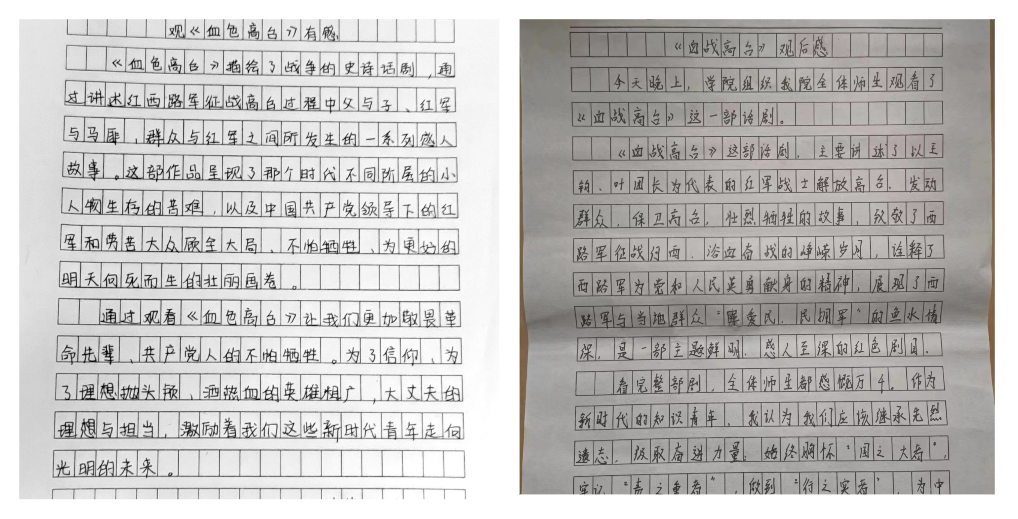 观《血色高台》有感
《血色高台》描绘了战争的史诗话剧,通
过讲述红西路军征战高台过程中父与子、红军
与马匪,群众与红军之间所发生的一系列感人
故事。这部作品呈现了那个时代不同阶层的小
人物生存的苦难,以及中国共产党领导下的红
军和劳苦大众顾全大局、不怕牺牲、为更好的
明天向死而生的壮丽画卷。
通过观看《血色高台》让我们更加敬畏革
命先辈、共产党人的不怕牺牲。为了信仰、为
了理想抛头颅、洒热血的英雄相广,大丈夫的
理想与担当,激励着我们这些新时代青年走向
光明的未来。
《血战高台》观后感
今天晚上,学院组织我院全体师生观看了
《血战高台》这一部话剧。
《血战高台》这部话剧,主要讲述了以王
钧、叶团长为代表的红军战士解放高台、发动
群众、保卫高台、壮烈牺牲的故事,致敬了西
路军征战河西、浴血奋战的峥嵘岁月,诠释了
西路军为党和人民英勇献身的精神,展现了西
路军与当地群众“军爱民、民拥军”的鱼水情
深,是一部主题鲜明、感人至深的红色剧目。
看完整部剧,全体师生都感慨万千。作为
新时代的知识青年,我认为我们应该继承先烈
遗志,汲取奋进力量,始终胸怀“国之大者”,
牢记“责之重者”,做到“行之实者”,为中